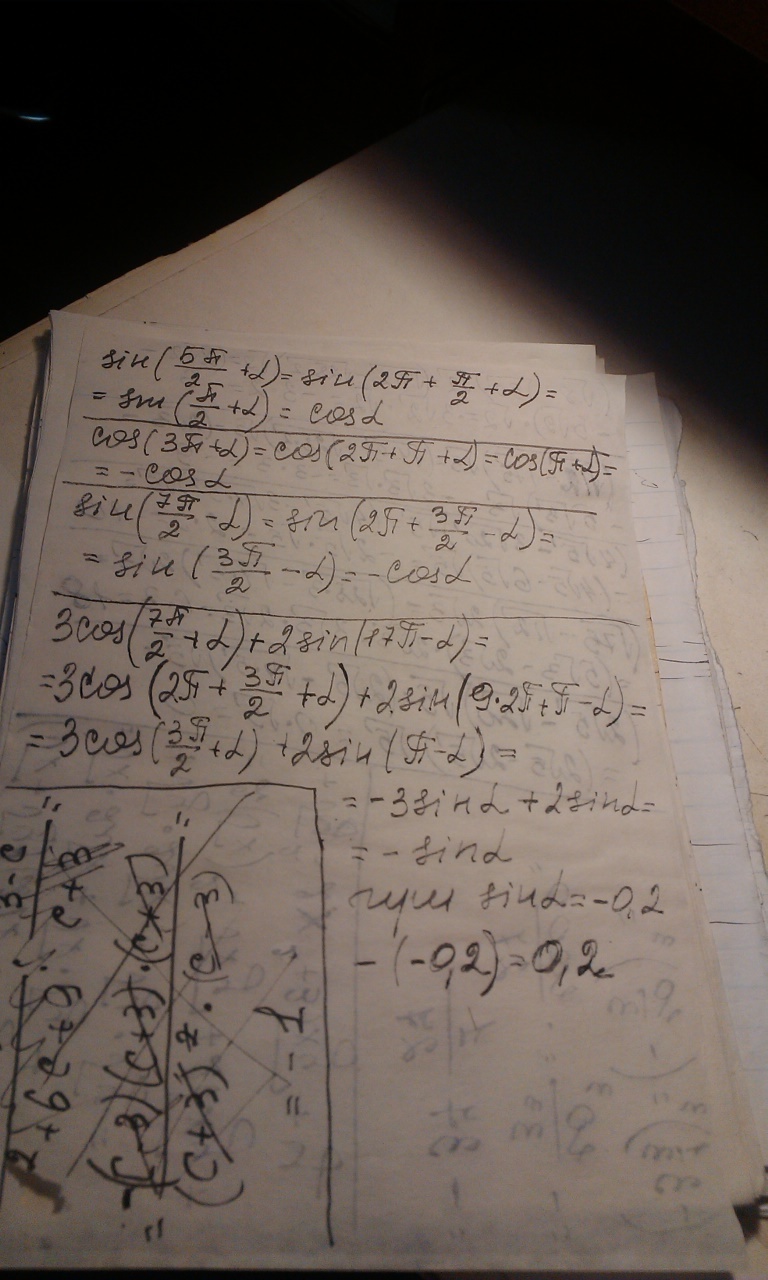 sin(5π/2 + α) = sin(2π + π/2 + α) =
= sin(π/2 + α) = cos α
cos(3π + α) = cos(2π + π + α) = cos(π + α) =
= - cos α
sin(7π/2 - α) = sin(2π + 3π/2 - α) =
= sin(3π/2 - α) = - cos α
3cos(7π/2 + α) + 2sin(17π - α) =
= 3cos(2π + 3π/2 + α) + 2sin(9·2π + π - α) =
= 3cos(3π/2 + α) + 2sin(π - α) =
= -3sin α + 2sin α =
= - sin α
при sin α = -0,2
- (-0,2) = 0,2
2 + 6c + 9 : 3-c / c+3 =
= -(c-3)(c+3)·(c+3) / (c+3)²·(c-3) =
= -1